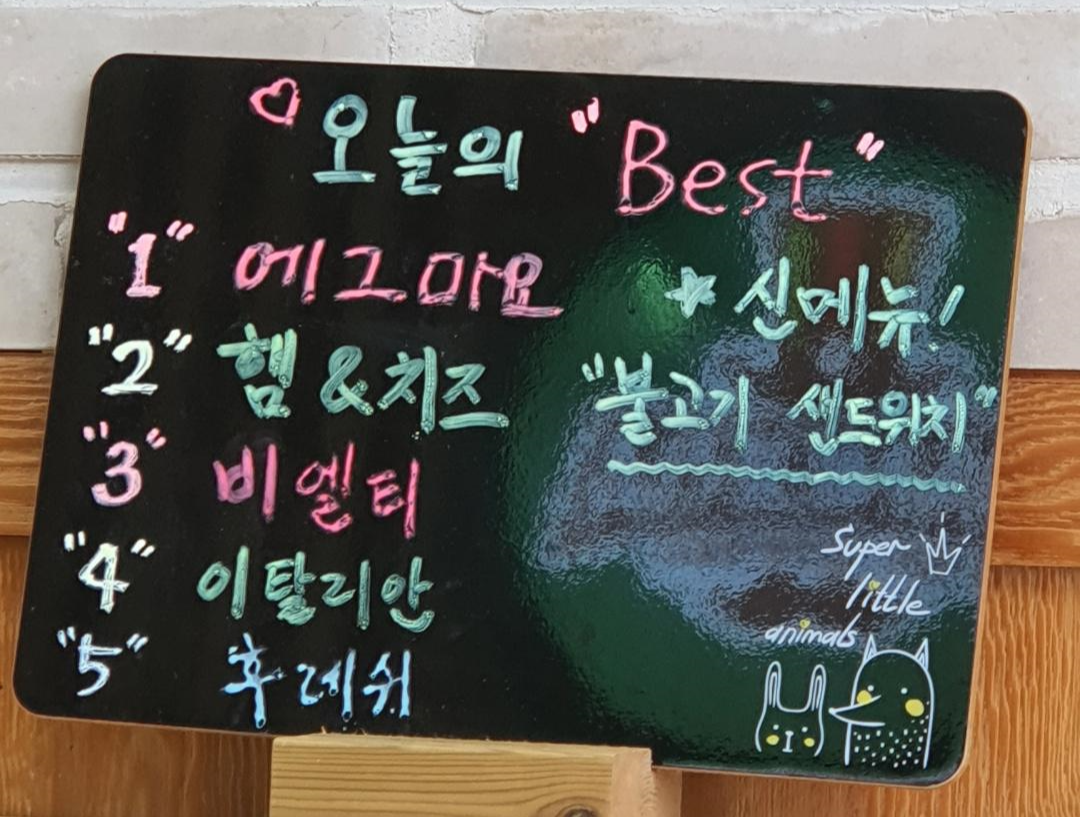 ♡ 오늘의 "Best"
"1" 에그마요
"2" 햄&치즈
"3" 비엘티
"4" 이탈리안
"5" 후레쉬
☆ 신메뉴!
"불고기 샌드위치"
Super
little
animals